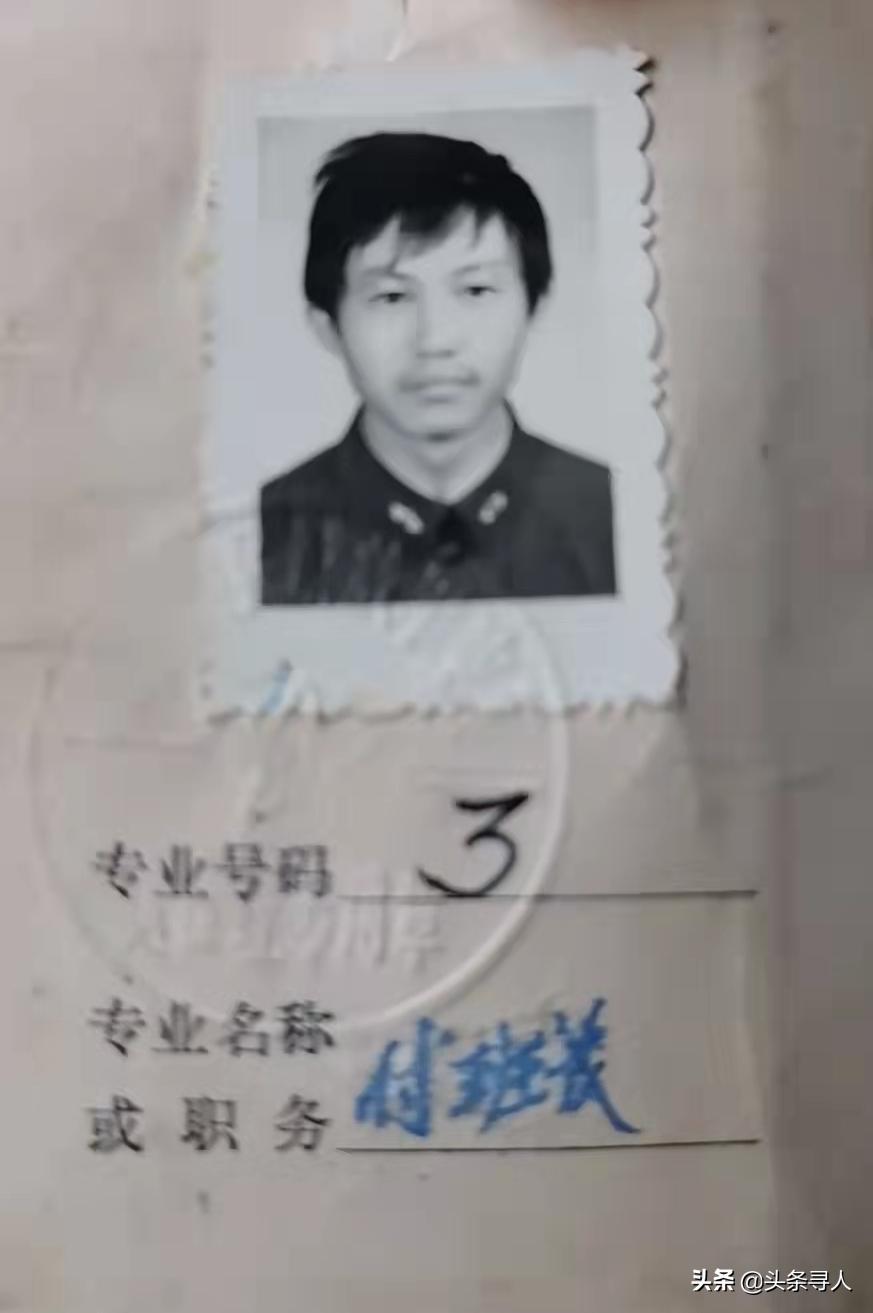 专业号码 3
专业名称
或职务 付班长
头条 @头条寻人